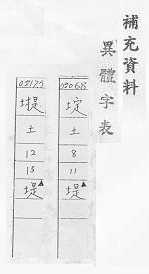 補充資料
異體字表
土
8
11
堤▲
土
12
15
堤▲